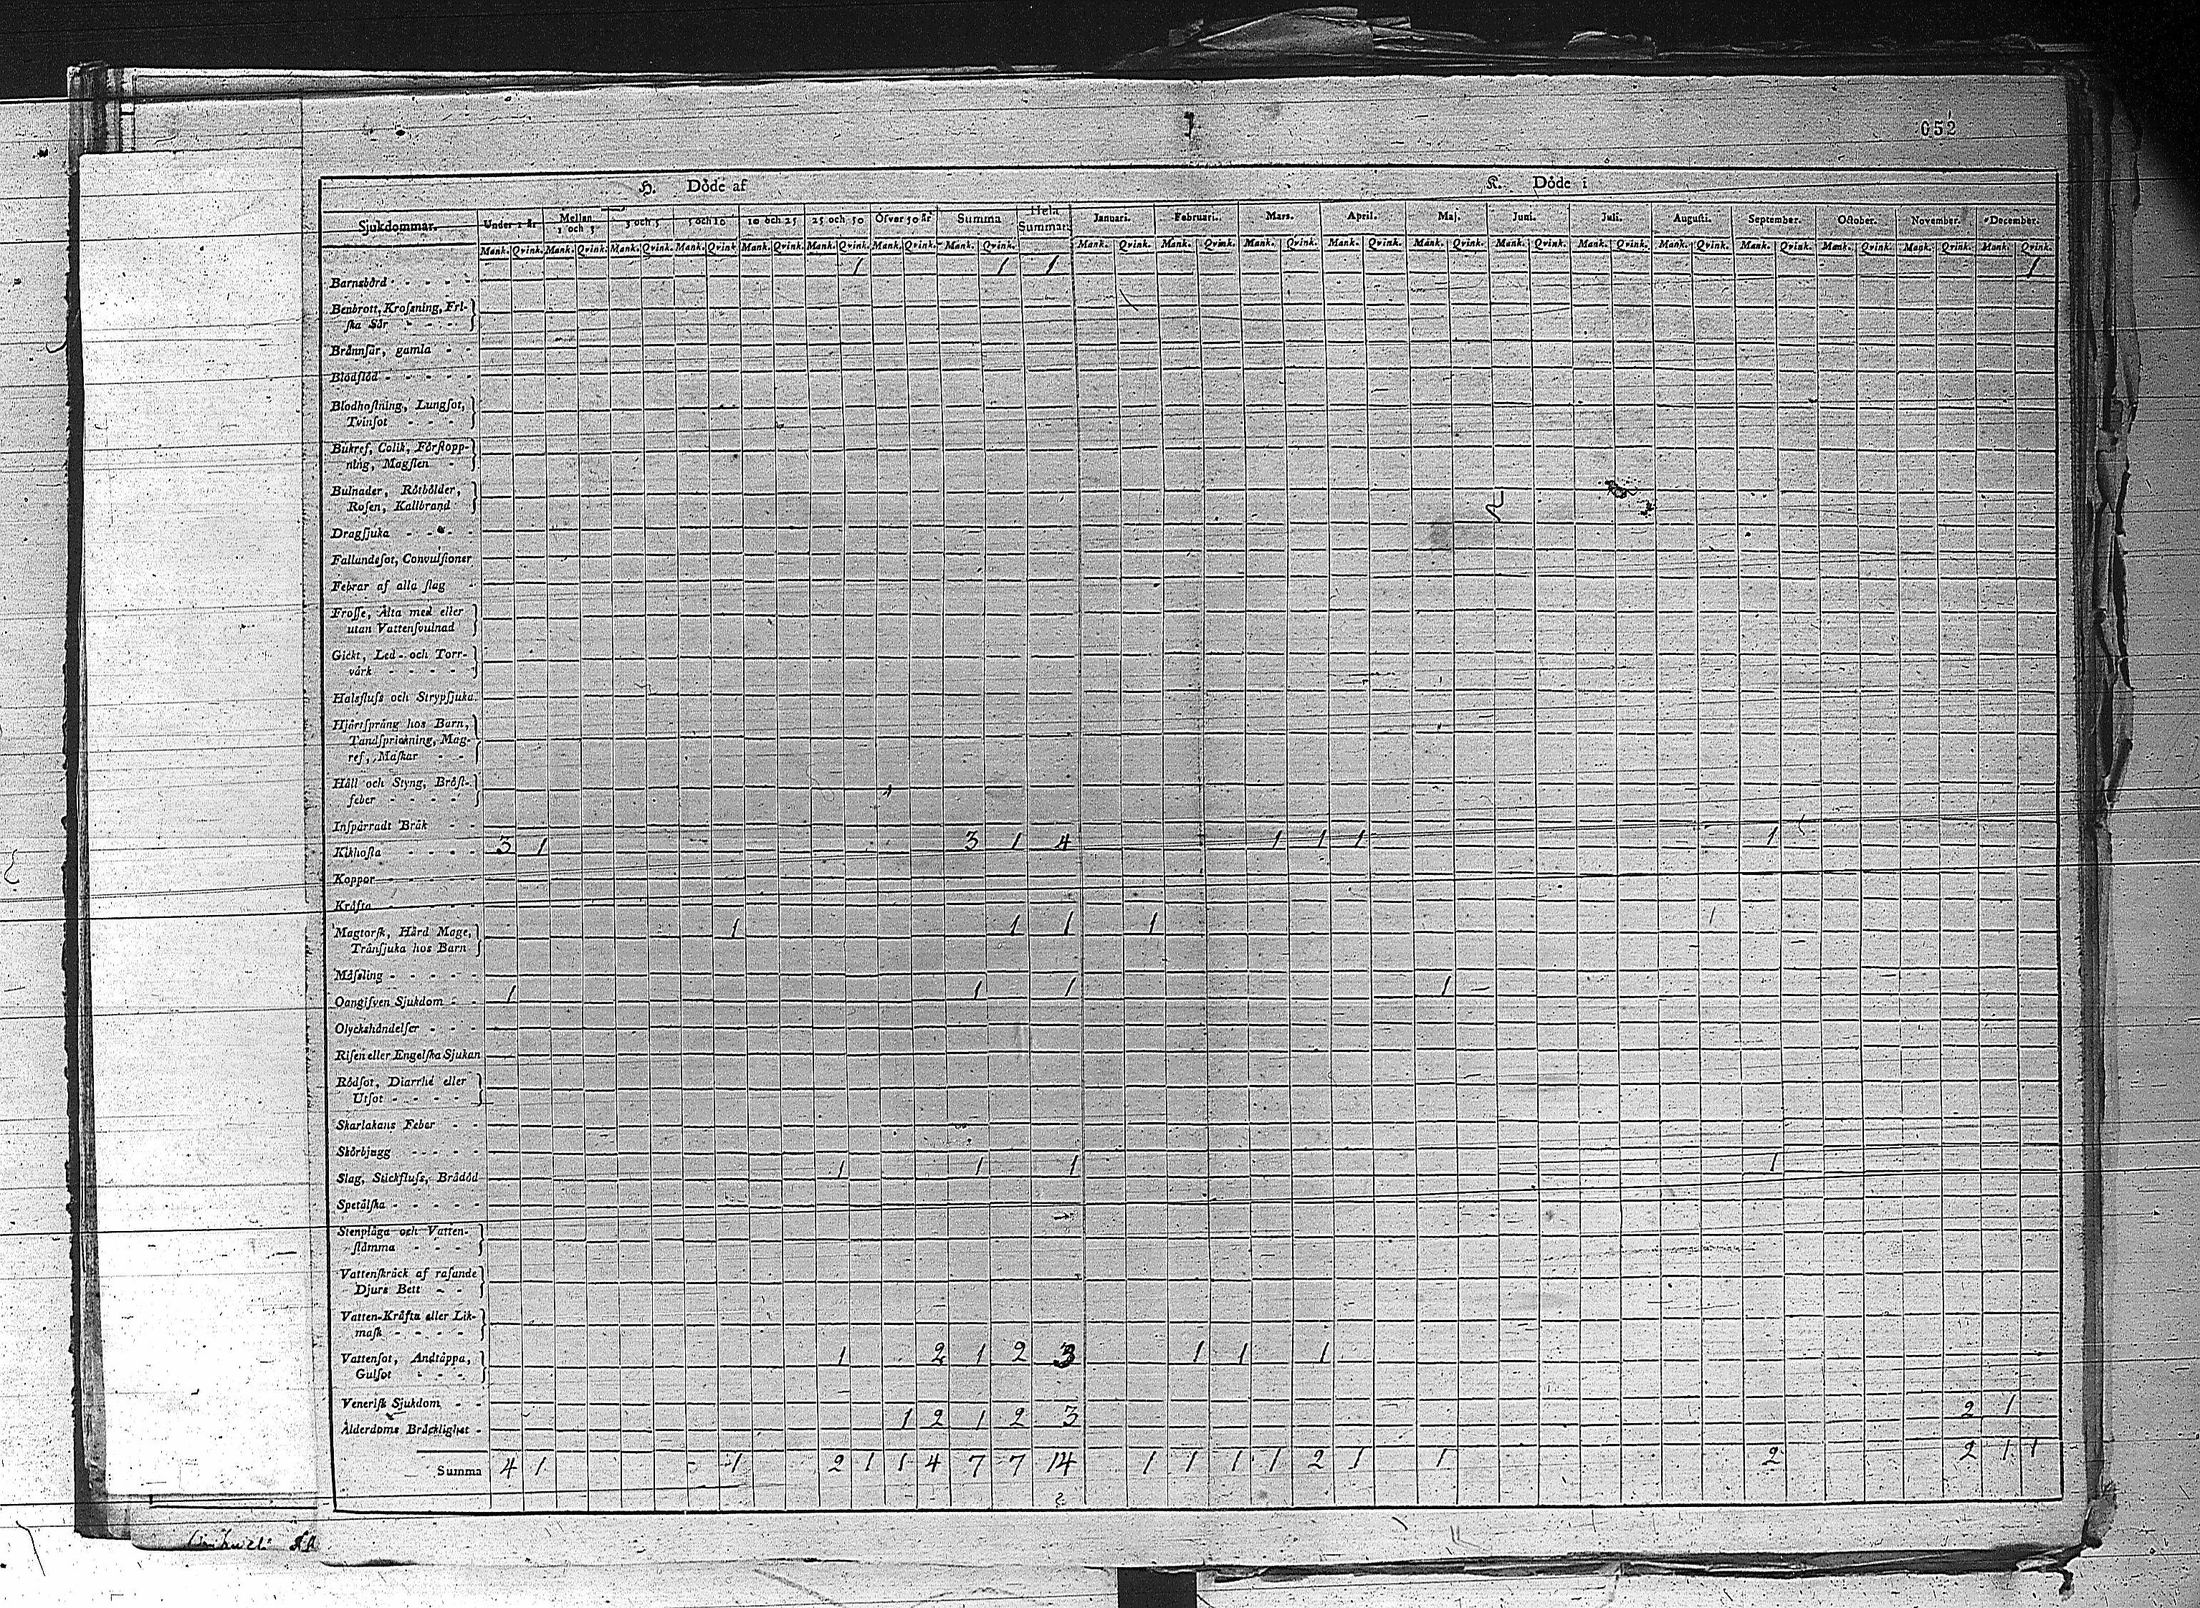 052
H. Döde af K. Döde i
Sjukdommar. Under 1 år Mellan 1 och 3 3 och 5 5 och 10 10 och 25 25 och 50 Öfver 50 år Summa Hela Summan. Januari. Februari. Mars. April. Maj. Juni. Juli. Augusti. September. October. November. December.
Mank. Qvink. Mank. Qvink. Mank. Qvink. Mank. Qvink. Mank. Qvink. Mank. Qvink. Mank. Qvink. Mank. Qvink. Mank. Qvink. Mank. Qvink. Mank. Qvink. Mank. Qvink. Mank. Qvink. Mank. Qvink. Mank. Qvink. Mank. Qvink. Mank. Qvink. Mank. Qvink. Mank. Qvink. Mank. Qvink.
Barnsbörd - - - - - 1 1 1 1
Benbrott, Krosning, Fri-
ſka Sår - - - -
Brännſår, gamla - -
Blodflöd - - - - -
Blodhoſtning, Lungſot,
Tvinſot - - - -
Bukref, Colik, Förſtopp-
ning, Magſten -
Bulnader, Rötbölder,
Roſen, Kallbrand
Dragſjuka - - - -
Fallandeſot, Convulſioner
Febrar af alla ſlag -
Froſſe, Älta med eller
utan Vattenſvulnad
Gickt, Led- och Torr-
värk - - - - -
Halsfluſs och Strypſjuka.
Hjärtſpräng hos Barn,
Tandſprickning, Mag-
ref, Maſkar - -
Håll och Styng, Bröſt-
feber - - - -
Inſpärradt Bråk - -
Kikhoſta - - - - 3 1 3 1 4 1 1 1 1
Koppor - - - - -
Kräfta - - - - -
Magtorſk, Hård Mage, 1 1 1 1
Tränſjuka hos Barn
Mäſsling - - - - -
Oangifven Sjukdom - - 1 1 1 1
Olyckshändelſer - - -
Riſen eller Engelſka Sjukan
Rödſot, Diarrhé eller
Utſot - - - - -
Skarlakans Feber - -
Skörbjugg - - - - -
Slag, Stickfluſs, Brådöd 1 1 1 1
Spetälſka - - - - -
Stenplåga och Vatten-
ſtämma - - - -
Vattenſkräck af raſande
Djurs Bett - -
Vatten-Kräfta eller Lik-
maſk - - - -
Vattenſot, Andtäppa, 1 2 1 2 3 1 1 1
Gulſot - - -
Veneriſk Sjukdom - -
Ålderdoms Bräcklighet - 1 2 1 2 3 2 1
Summa 4 1 1 2 1 1 4 7 7 14 1 1 1 1 2 1 1 2 2 1 1